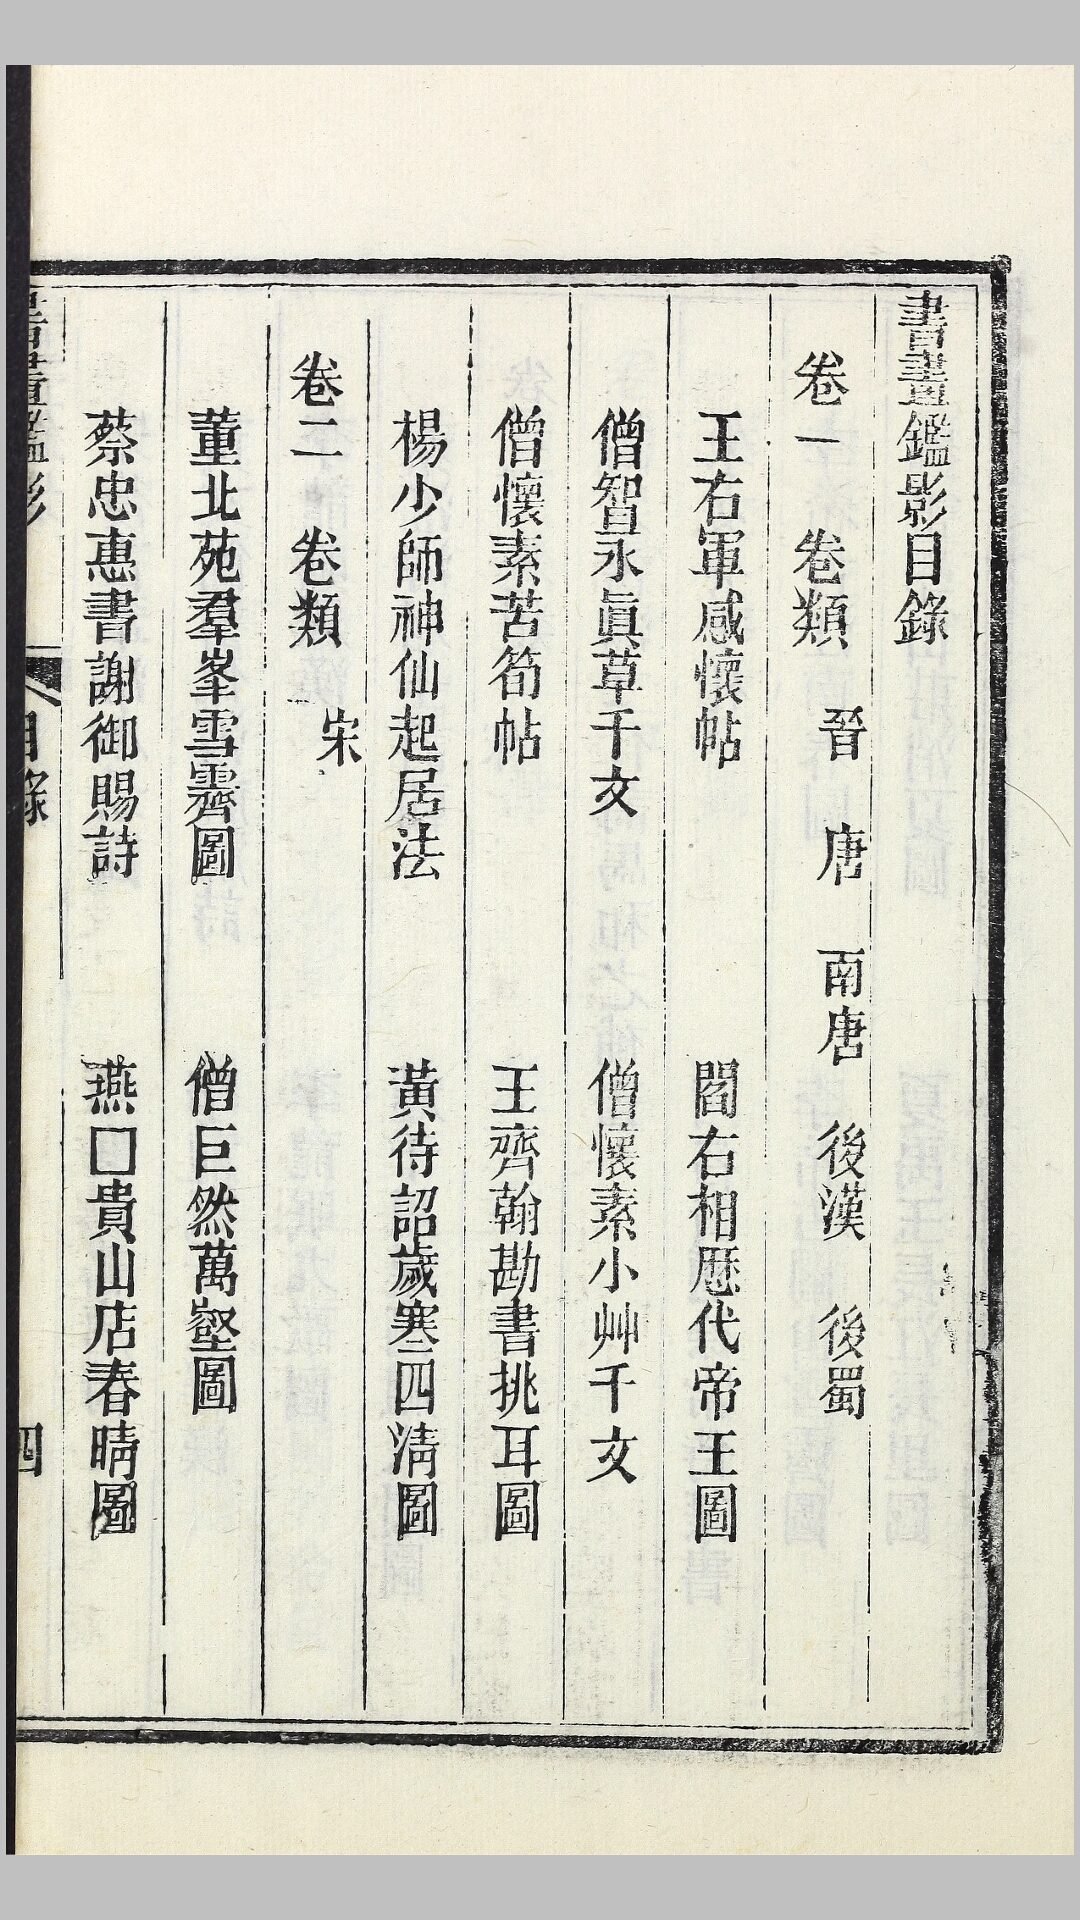 書畫鑑影目錄
卷一 卷類 晉 唐 南唐 後漢 後蜀
王右軍感懷帖 閻右相歷代帝王圖
僧智永眞草千文 僧懷素小艸千文
僧懷素苦筍帖 王齊翰勘書挑耳圖
楊少師神仙起居法 黃待詔歲寒四淸圖
卷二 卷類 宋
董北苑羣峯雪霽圖 僧巨然萬壑圖
蔡忠惠書謝御賜詩 燕□貴山店春晴圖
書畫鑑影 目錄 四